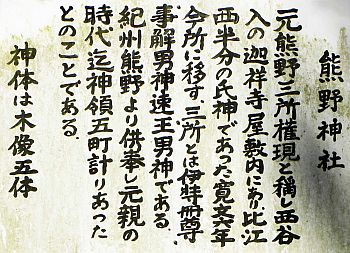 熊野神社
元熊野三所権現と称し西谷
入の迦祥寺屋敷内にあり比江
西半分の氏神であった寛文六年
今所に移す。三所とは伊特冊尊
事解男神速玉男神である。
紀州熊野より供奉し元親の
時代迄神領五町計りあった
とのことである。
神体は木像五体